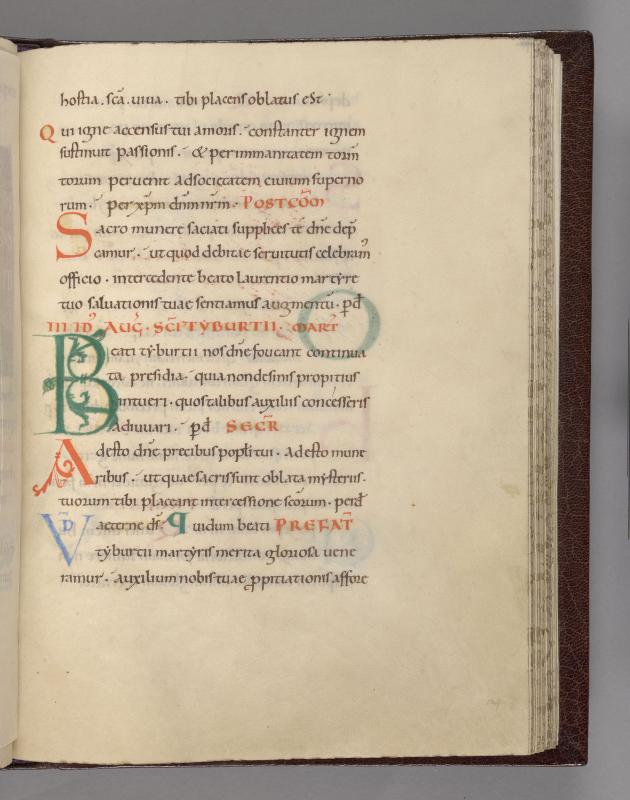 hostia. scā. uiua. tibi placens oblatus est.
Qui igne accensus tui amoris. constanter ignem
sustinuit passionis. & per immanitatem torm̄
torum peruenit ad societatem ciuium superno
rum. per xp̄m dn̄m nr̄m. POSTCŌM
Sacro munere saciati supplices te dn̄e dep̄
camur. ut quod debitae seruitutis celebram᾽
officio. intercedente beato laurentio martyre
tuo saluationis tuae sentiamus augmentū. p̄d
III ID᾽ AUḠ. SCĪ TYBURTII. MART̄
Beati tyburtii nos dn̄e foueant continua
ta presidia. quia non desinis propitius
intueri. quos talibus auxiliis concesseris
adiuuari. p̄d SECR̄
Adesto dn̄e precibus popl̄i tui. adesto mune
ribus. ut quae sacris sunt oblata mysteriis.
tuorum tibi placeant intercessione scōrum. perd̄
VD̄ aeterne ds̄. Qui dum beati PREFAT̄
tyburtii martyris merita gloriosa uene
ramur. auxilium nobis tuae ꝓpitiationis affore